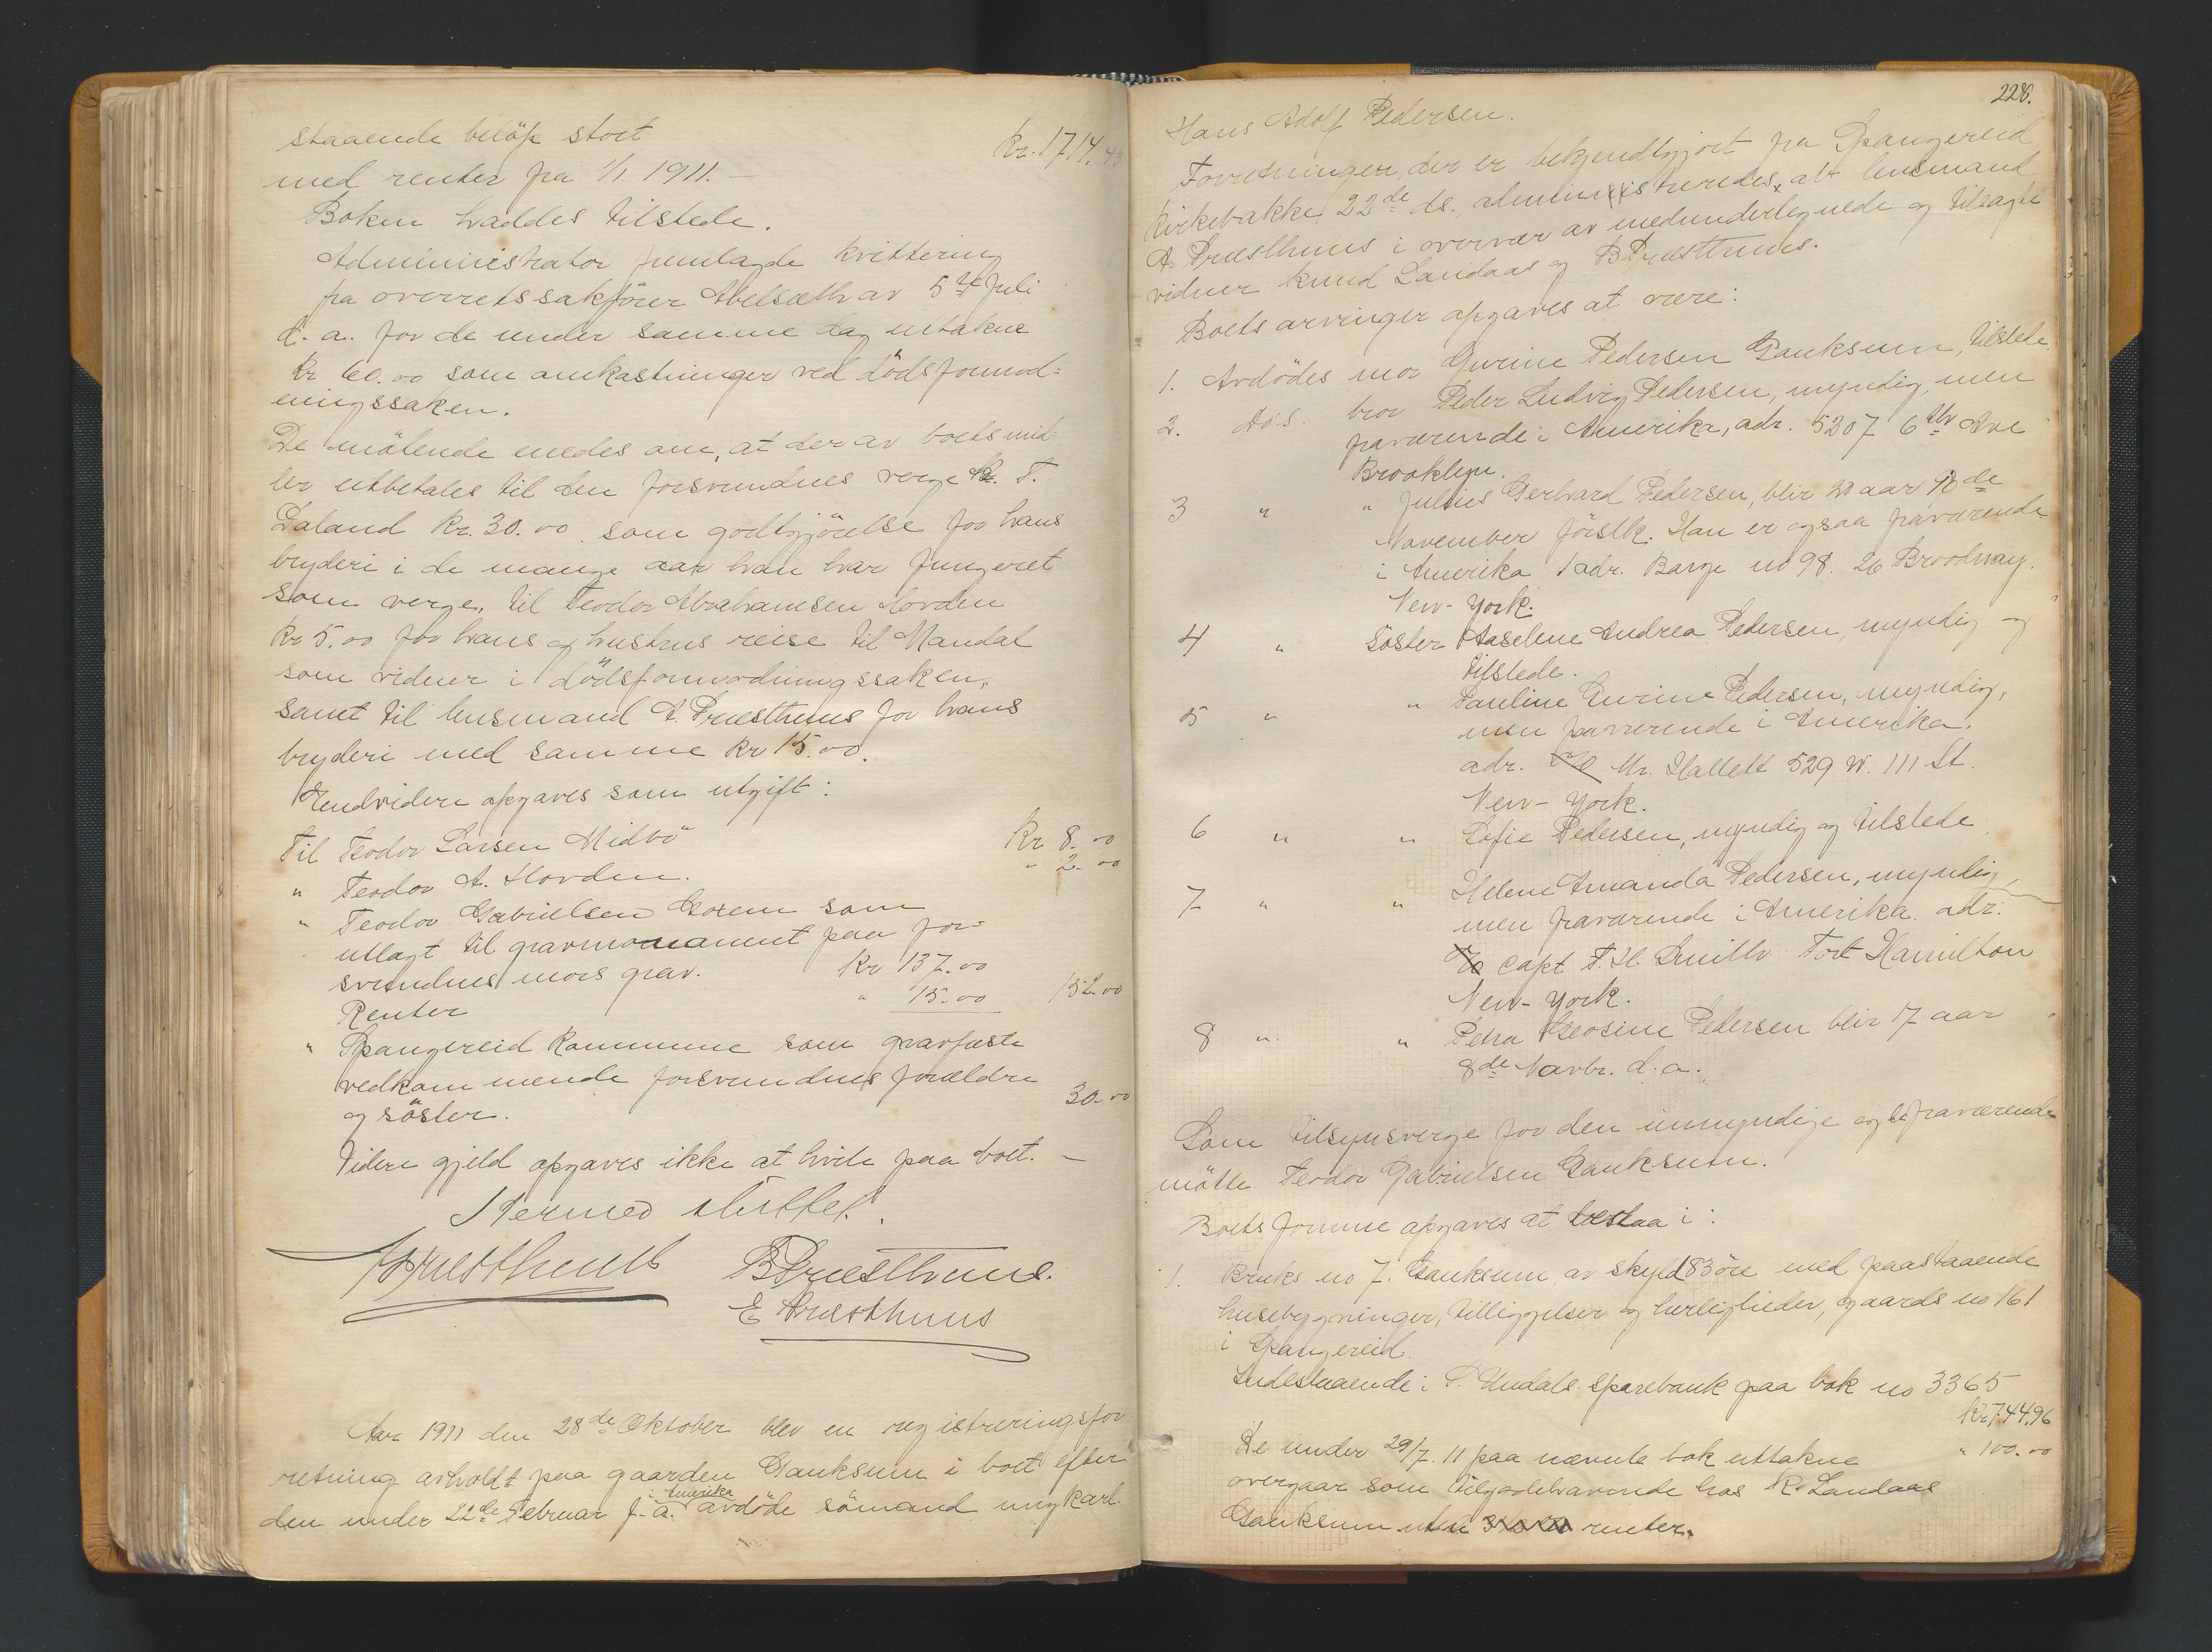 staaende beløp stort
Kr. 1714,43
med renter fra 1/1. 1911. —
Boken haddes tilstede.
Administrator fremlagde kvittering
fra overretssakfører Abelsæth av 5te Juli
d. a. for de under samme dag uttakne
Kr 60.00 som omkostninger ved dødsformod=
ningssaken.
De møtende enedes om, at der av boets mid
ler utbetales til den forsvundnes verge T.
Laland Kr. 30.00 som godtgjörelse for hans
bryderi i de mange aar han har fungeret
som verge, til Teodor Abrahamsen Hovden
Kr 5.00 for hans og hustrus reise til Mandal
som vidner i dödsformodningssaken,
samt til lensmand A. Præsthuus for hans
bryderi med samme Kr 15.00.
Endvidere opgaves som utgift:
Til Teodor Larsen Midbö Kr 8.00
" Teodor A. Hovden. " 2.00
" Teodor Gabrielsen Gosem som
utlagt til gravmonament paa for=
svundnes mors grav. Kr 137.00
Renter " 15.00 152.00
" Spangereid Kommune som gravfæste
vedkommende forsvundnes forældre
og söster. 30.00
Videre gjeld opgaves ikke at hvile paa boet. —
Hermed sluttet.
A. Præsthuus B Præsthuus.
E Præsthuus
Aar 1911 den 28de Oktober blev en registreringsfor
retning avholdt paa gaarden Gauksum i boet efter
i Amerika
den under 22de Februar f. a. avdöde sömand ungkarl
228.
Hans Adolf Pedersen.
Forretningen, der er bekjendtgjort fra Spangereid
Kirkebakke 22de ds., administreredes av lensmand
A. Præsthuus i overvær av medundertegnede og tilsagte
vidner Knud Landaas og B Præsthuus.
Boets arvinger opgaves at være:
1. Avdödes mor Gurine Pedersen Gauksum, tilstede.
2. Av.s. bror Peder Ludvig Pedersen, myndig, men
fraværende i Amerika, adr. 5207 6th Ave
Brooklyn.
3 " " Julius Gerhard Pedersen, blir 20 aar de
November förstk. Han er ogsaa fraværende
i Amerika adr. Barge no 98. 26 Broodway.
New-York.
4 " söster Aaselene Andrea Pedersen, myndig og
tilstede.
5 " " Pauline Gurine Pedersen, myndig,
men fraværende i Amerika.
adr. c/o Mr. Hallett 529 W. 111 St.
New-York.
6 " " Sofie Pedersen, myndig og tilstede
7 " " Helene Amanda Pedersen, myndig,
men fraværende i Amerika. adr.
c/o Capt T. H. Smith Fort Hamilton
New-York.
8 " " Petra Teosine Pedersen blir 17 aar
8de Novbr. d. a.
Som tilsynsverge for den umyndige og de fraværende
mötte Teodor Gabrielsen Gauksum.
Boets formue opgaves at bestaa i:
1. Bruks no 7. Gauksum av skyld 83 öre med paastaaende
husebygninger, tilliggelser og herligheder, gaards no 161
i Spangereid.
Indestaaende i S. Undals sparebank paa bok no 3365
Kr 744,96
De under 29/7. 11 paa nævnte bok uttakne " 100.00
overgaar som tilgodehavende hos K. Landaas
Gauksum uten renter.